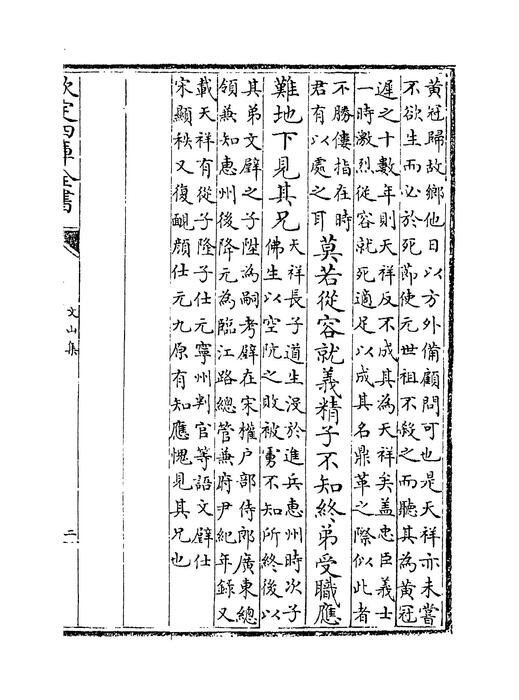 黄冠歸故鄉他日以方外備顧問可也是天祥亦未嘗
不欲生而必於死即使元世祖不殺之而聽其為黄冠
遲之十數年則天祥反不成其為天祥矣盖忠臣義士
一時激烈從容就死適足以成其名鼎革之際似此者
不勝僂指在時
君有以處之耳
莫若從容就義精子不知終弟受職應
難地下見其兄
天祥長子道生没於進兵惠州時次子
佛生以空阬之敗被虜不知所終後以
其弟文璧之子陞為嗣考璧在宋權户部侍郎廣東總
領兼知惠州後降元為臨江路總管兼府尹紀年録又
載天祥有從子隆子仕元寧州判官等語文璧仕
宋顯秩又復靦顔仕元九原有知應愧見其兄也
欽定四庫全書
文山集
二